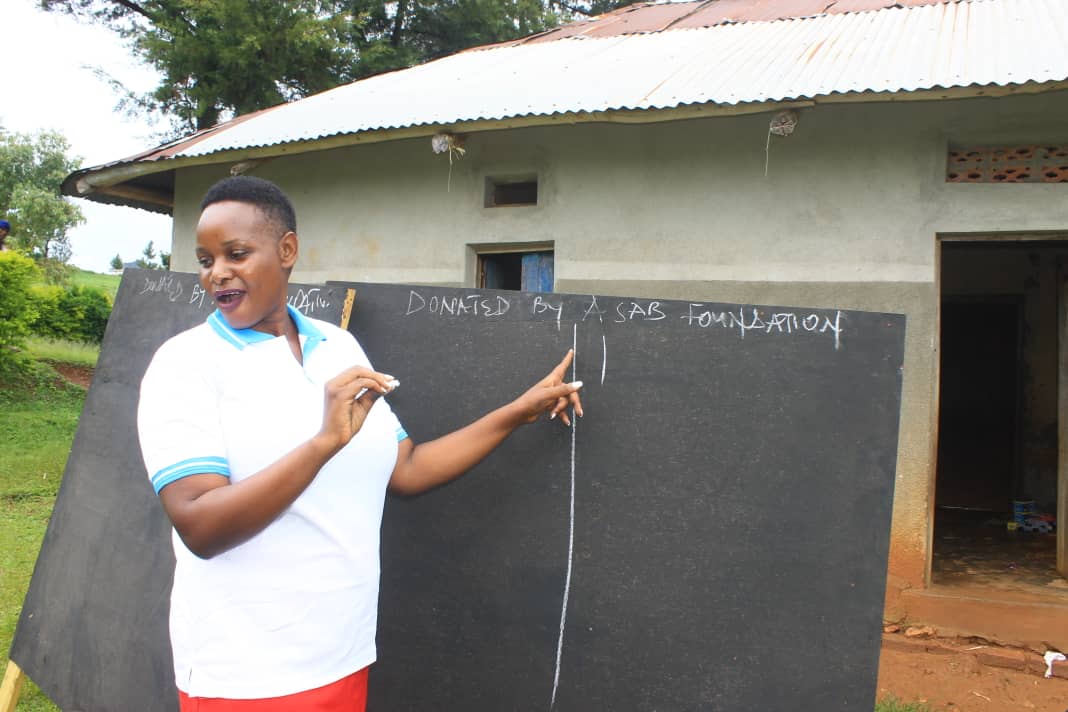 DONATED BY
DONATED BY ASAB FOUNDATION